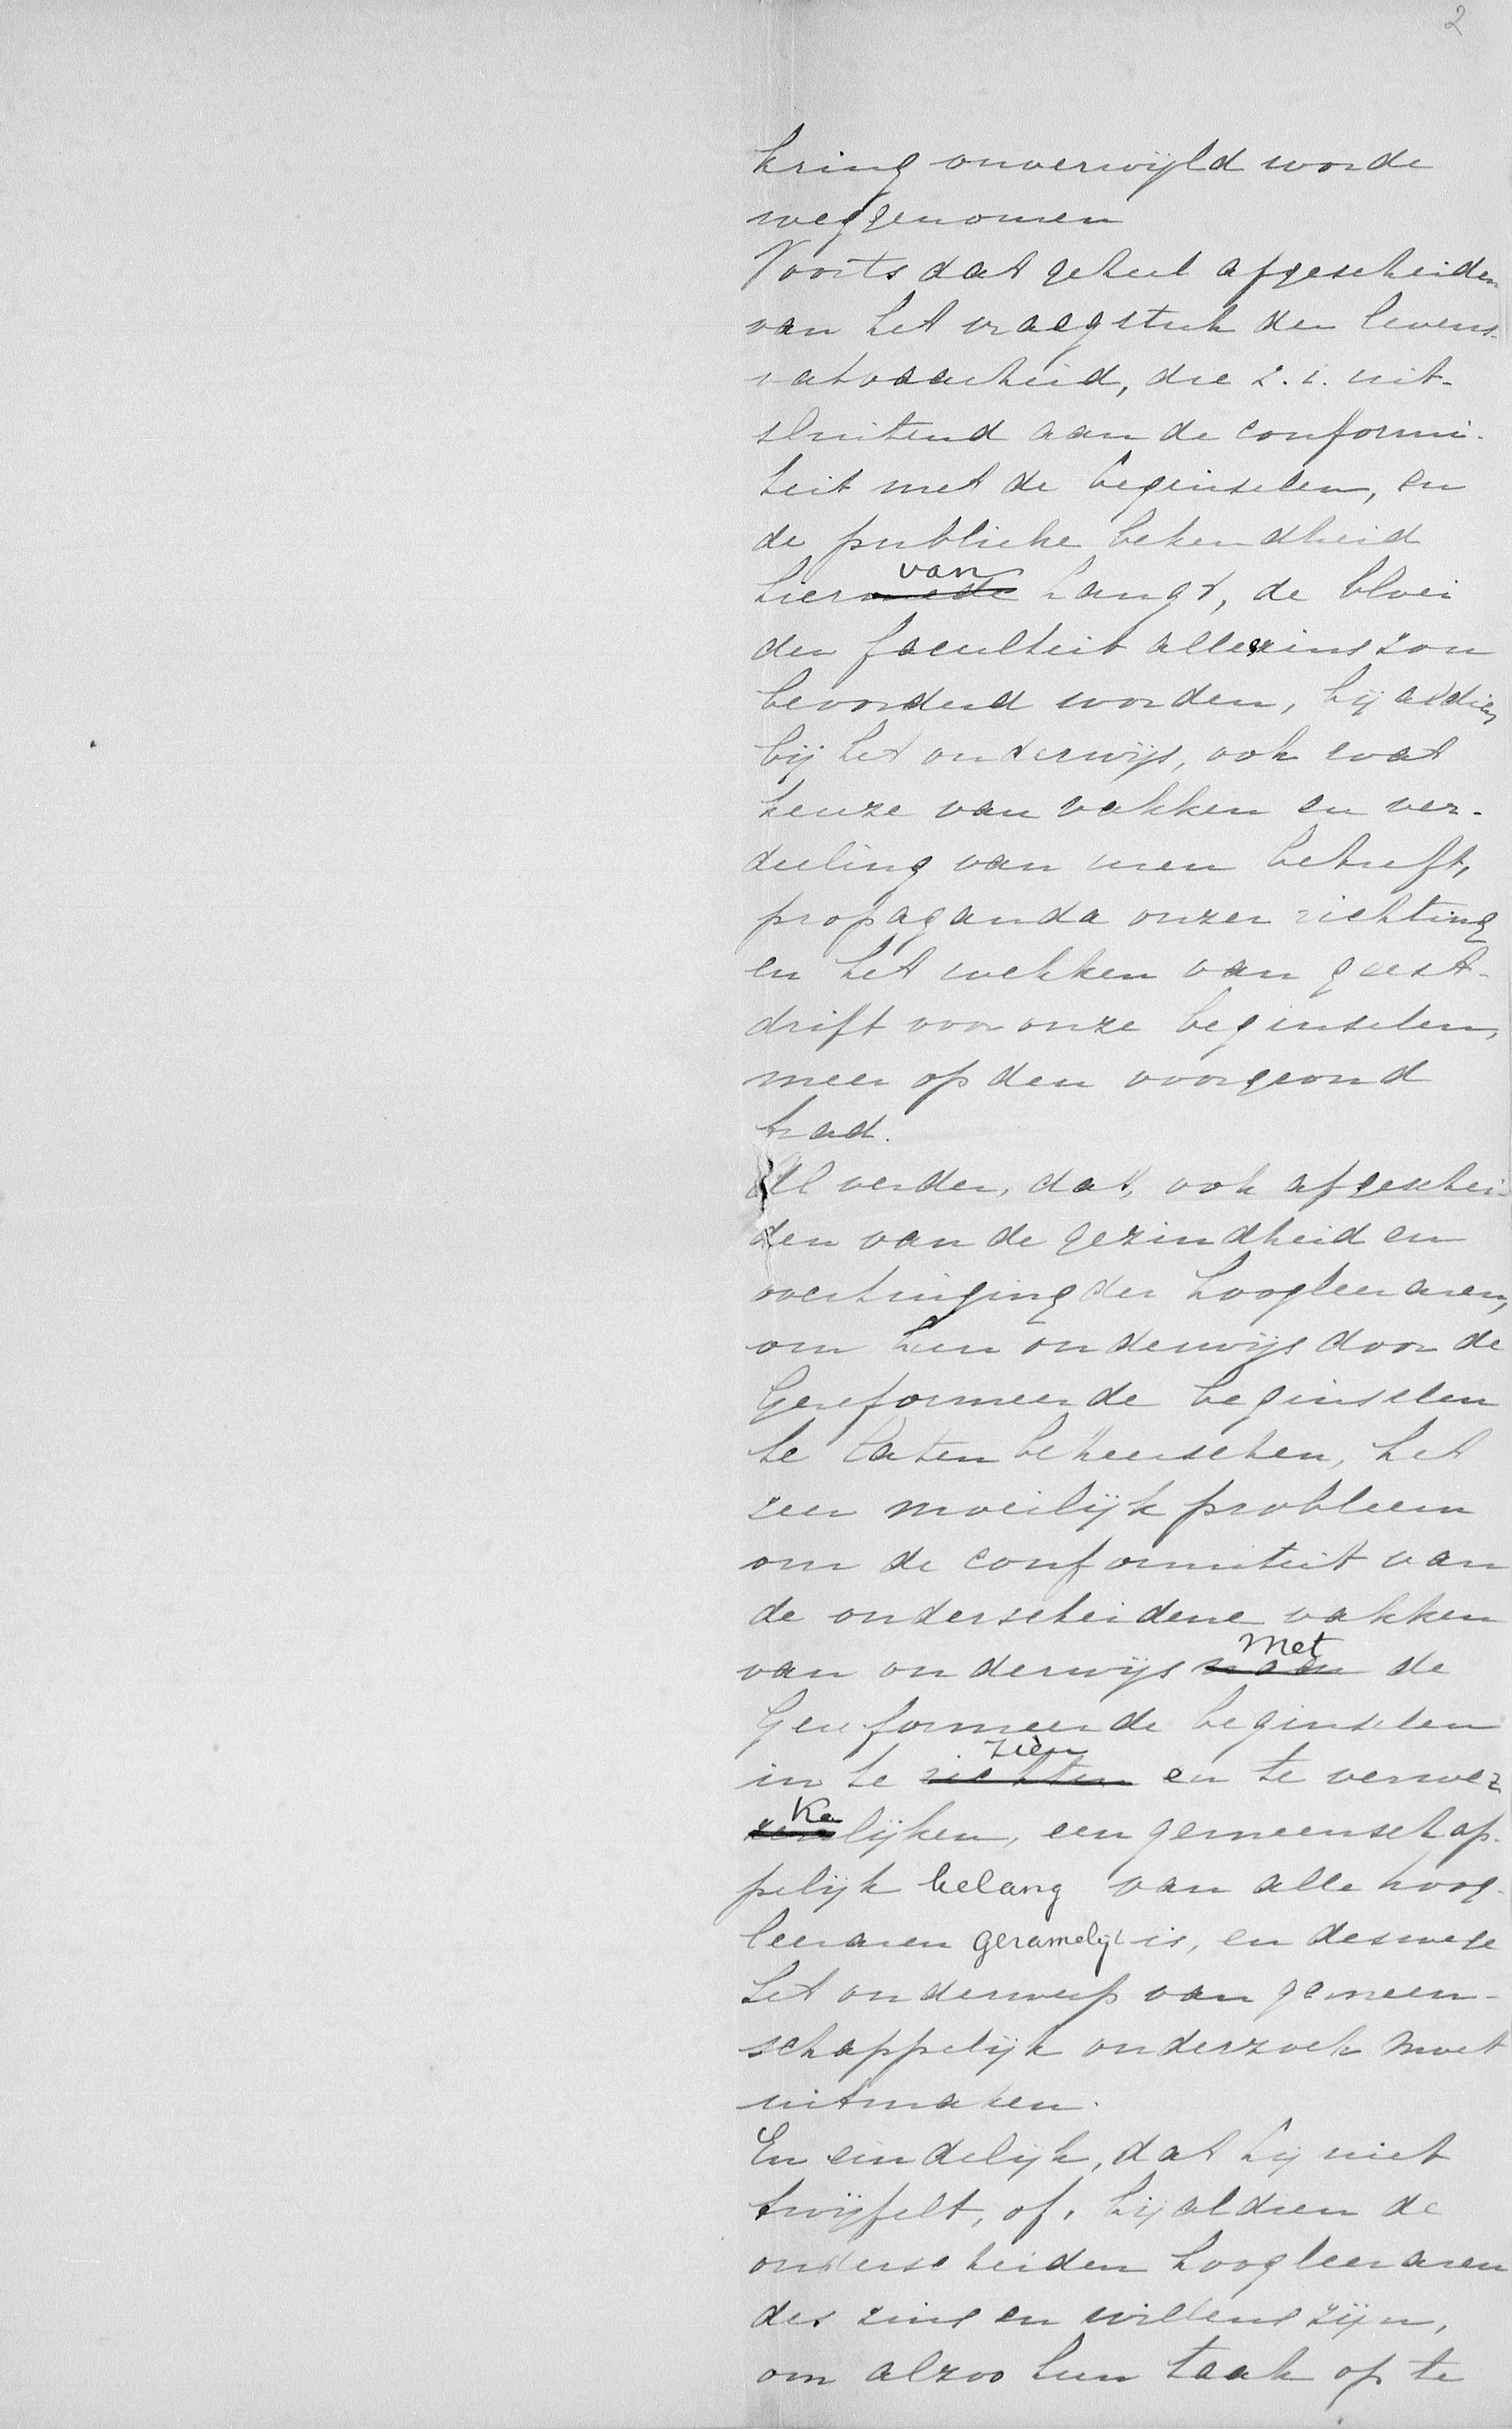 2
kring onverwijld worde
weggenomen
Voorts dat geheel afgescheiden
van het vraagstuk der levens-
vatbaarheid, die z.i. uit-
sluitend aan de conformi-
teit met de beginselen, en
de publieke bekendheid
van
hiermede hangt, de bloei
der faculteit alleszins zou
bevorderd worden, bijaldien
bij het onderwijs, ook wat
keuze van vakken en ver-
deeling van uren betreft,
propaganda onzer richting
en het wekken van geest-
drift voor onze beginselen,
meer op den voorgrond
trad.
Al verder, dat, ook afgeschei-
den van de gezindheid en
overtuiging der hoogleeraren,
om hun onderwijs door de
Gereformeerde beginselen
te laten beheerschen, het
zeer moeilijk probleem
om de conformiteit van
de onderscheidene vakken
met
van onderwijs naar de
Gereformeerde beginselen
zien
in te richten en te verwez
ke
lijken, een gemeenschap-
pelijk belang van alle hoog-
leeraren gezamelijk is, en deswege
het onderwerp van gemeen-
schappelijk onderzoek moet
uitmaken.
En eindelijk, dat hij niet
twijfelt, of, bijaldien de
onderscheiden hoogleeraren
des zins en willens zijn,
om alzoo hun taak op te